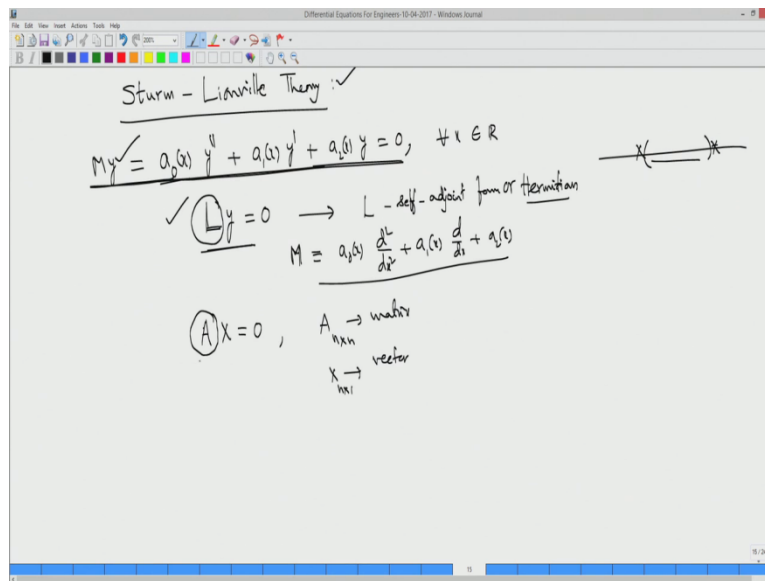 Differential Equations For Engineers-10-04-2017 - Windows Journal
File Edit View Insert Actions Tools Help
200%
B I
Sturm - Liouville Theory :
My = a₀(x) y'' + a₁(x) y' + a₂(x) y = 0, ∀ x ∈ R
Ly = 0 → L - self-adjoint form or Hermitian
M ≡ a₀(x) d²/dx² + a₁(x) d/dx + a₂(x)
AX = 0 , A n×n → matrix
X n×1 → vector
15 / 24
15